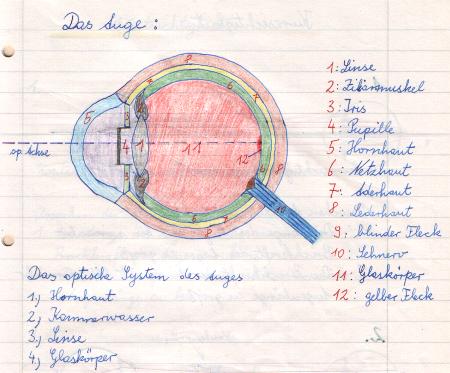 Das Auge:
1: Linse
2: Ziliarmuskel
3: Iris
4: Pupille
5: Hornhaut
6: Netzhaut
7: Aderhaut
8: Lederhaut
9: blinder Fleck
10: Sehnerv
11: Glaskörper
12: gelber Fleck
op. Achse
8
7
6
5
3
2
4
1
11
12
9
10
Das optische System des Auges
1.) Hornhaut
2.) Kammerwasser
3.) Linse
4.) Glaskörper
2.